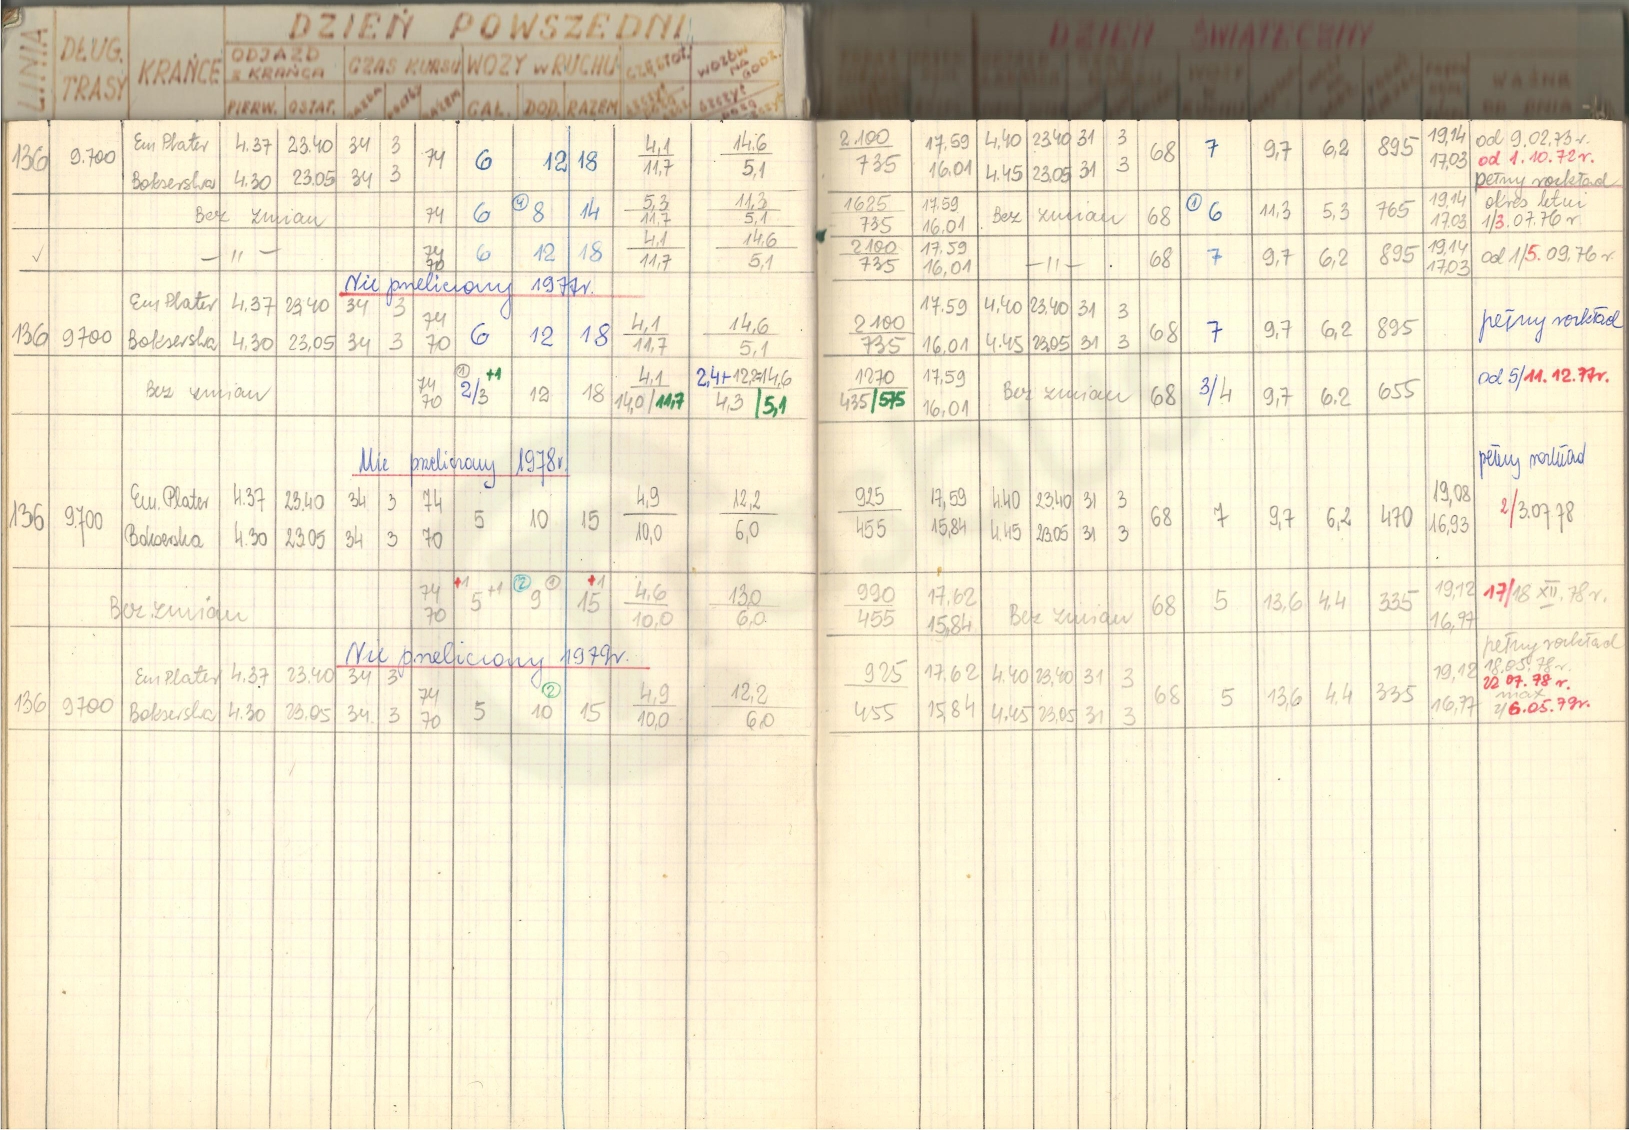 DZIEŃ POWSZEDNI DZIEŃ ŚWIĄTECZNY
LINIA DŁUG. TRASY KRAŃCE ODJAZD z KRAŃCA CZAS KURSU WOZY w RUCHU CZĘSTOT. WOZÓW NA GODZ. WAŻNE OD DNIA
PIERW. OSTAT. JAZDA RAZEM CAŁ. DOD. RAZEM SZCZYT SZCZYT
Em Plater 4.37 23.40 34 3 4,1 14.6 2.100 17.59 4.40 23.40 31 3 19,14 od 9.02.73 r.
136 9.700 74 6 12 18 68 7 9,7 6,2 895 od 1.10.72 r.
Bokserska 4.30 23.05 34 3 11,7 5,1 735 16.01 4.45 23.05 31 3 17,03 pełny rozkład
Bez zmian 74 6 (4) 8 14 5,3 11,3 1625 17.59 Bez zmian 68 (1) 6 11,3 5,3 765 19,14 okres letni
11,7 5,1 735 16,01 17.03 1/3.07.76 r
✓ — 11 — 74 6 12 18 4,1 14.6 2100 17.59 — 11 — 68 7 9,7 6,2 895 19,14 od 1/5.09.76 r.
70 11,7 5,1 735 16,01 17.03
Nie przeliczony 1977r.
Em Plater 4.37 23,40 34 3 74 4,1 14.6 2100 17.59 4,40 23.40 31 3 pełny rozkład
136 9700 6 12 18 68 7 9,7 6,2 895
Bokserska 4.30 23,05 34 3 70 11,7 5,1 735 16.01 4.45 23.05 31 3
Bez zmian 74 (1) 2/3 +1 12 18 4,1 2,4+12,2=14,6 1270 17.59 Bez zmian 68 3/4 9,7 6.2 655 od 5/11.12.77r.
70 14,0/11,7 4,3/5,1 435/575 16,01
Nie przeliczony 1978r. pełny rozkład
Em. Plater 4.37 23.40 34 3 74 4,9 12,2 925 17,59 4.40 23.40 31 3 19,08
136 9.700 5 10 15 68 7 9,7 6,2 470 2/3.07 78
Bokserska 4.30 23.05 34 3 70 10,0 6,0 455 15,84 4.45 23.05 31 3 16,93
Bez zmian 74 +1 5 +1 (2) 9 (1) +1 15 4,6 13,0 990 17,62 Bez zmian 68 5 13,6 4.4 335 19,12 17/18 XII. 78 r.
70 10,0 6,0 455 15,84 16,77
Nie przeliczony 1979r. pełny rozkład
Em Plater 4.37 23.40 34 3 74 (2) 4,9 12,2 925 17,62 4.40 23,40 31 3 19,12 18.05.78 r.
22 07.78 r.
136 9700 5 10 15 68 5 13,6 4.4 335 max
Bokserska 4.30 23.05 34 3 70 10,0 6,0 455 15,84 4.45 23,05 31 3 16,77 2/6.05.79r.